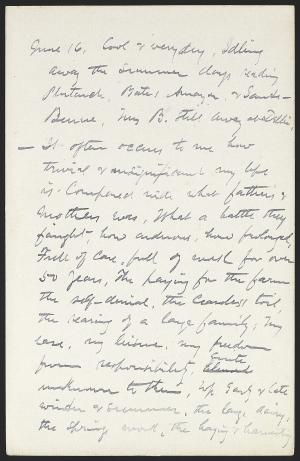 June 16. Cool & very dry, Idling
away the summer days reading
Plutarch, Bates Amazon, & Sainte-
Beuve, Mrs B. still away at Delhi,
— It often occurs to me how
trivial & insignificant my life
is compared with what father's &
mothers was, What a battle they
fought, how arduous, how prolonged,
Full of care, full of work for over
50 years, The paying for the farm
the self-denial, the ceaseless toil
the rearing of a large family; my
ease, my leisure, my freedom
from responsibility, quite almost
unknown to them, Up early & late
winter & summer, the large dairy,
the spring work, the haying & harvesting